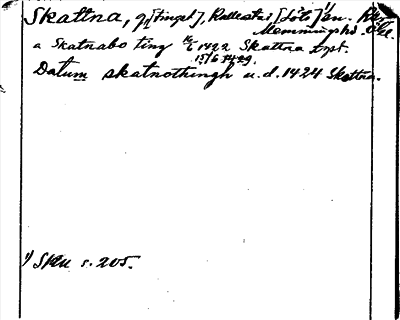 Skattna, g, [tinget], Kullestad [Löts] sn.
Memmingshd Ög.
a Skatnabo ting 16/6 1422 Skattna tgpl.
15/6 1429.
Datum skatnothingh u.d. 1424 Skattna.
1) SRU s. 205.